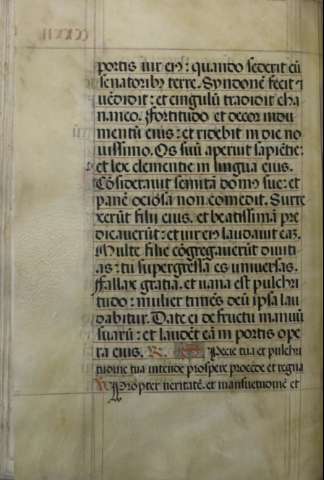 portis vir eiꝰ: quando sederit cū
senatoribꝫ terre. Syndonē fecit ⁊
vēdidit: et cingulū tradidit cha
naneo. Fortitudo et decor indu
mentū eius: et ridebit in die no
uissimo. Os suū aperuit sapiētie:
et lex clementie in lingua eius.
Cōsiderauit semita domꝰ sue: et
panē ociosa non comedit. Surre
xerūt filii eius. et beatissimā pre
dicauerūt: et vir eiꝰ laudauit eā.
Multe filie cōgregauerūt diuiti
as: tu supergressa es vniuersas.
Fallax gratia. et vana est pulchri
tudo: mulier timēs deū ipsa lau
dabitur. Date ei de fructu manuū
suarū: et laudēt eā in portis ope
ra eius. Specie tua et pulchri
tudine tua intende prospere procede et regna
Propter veritatē. et mansuetudinē et